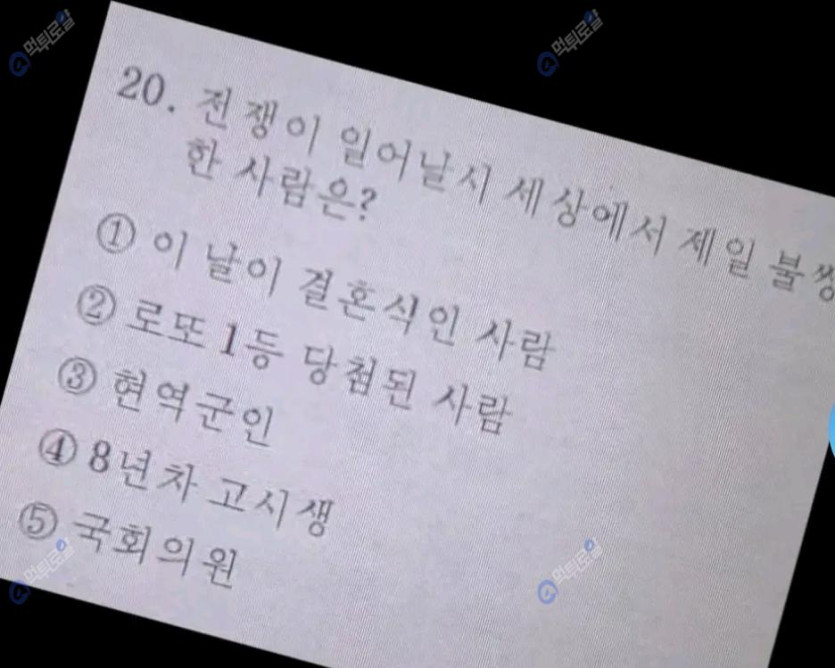 20. 전쟁이 일어날시 세상에서 제일 불쌍
한 사람은?
① 이 날이 결혼식인 사람
② 로또 1등 당첨된 사람
③ 현역군인
④ 8년차 고시생
⑤ 국회의원
먹튀로얄
먹튀로얄
먹튀로얄
먹튀로얄